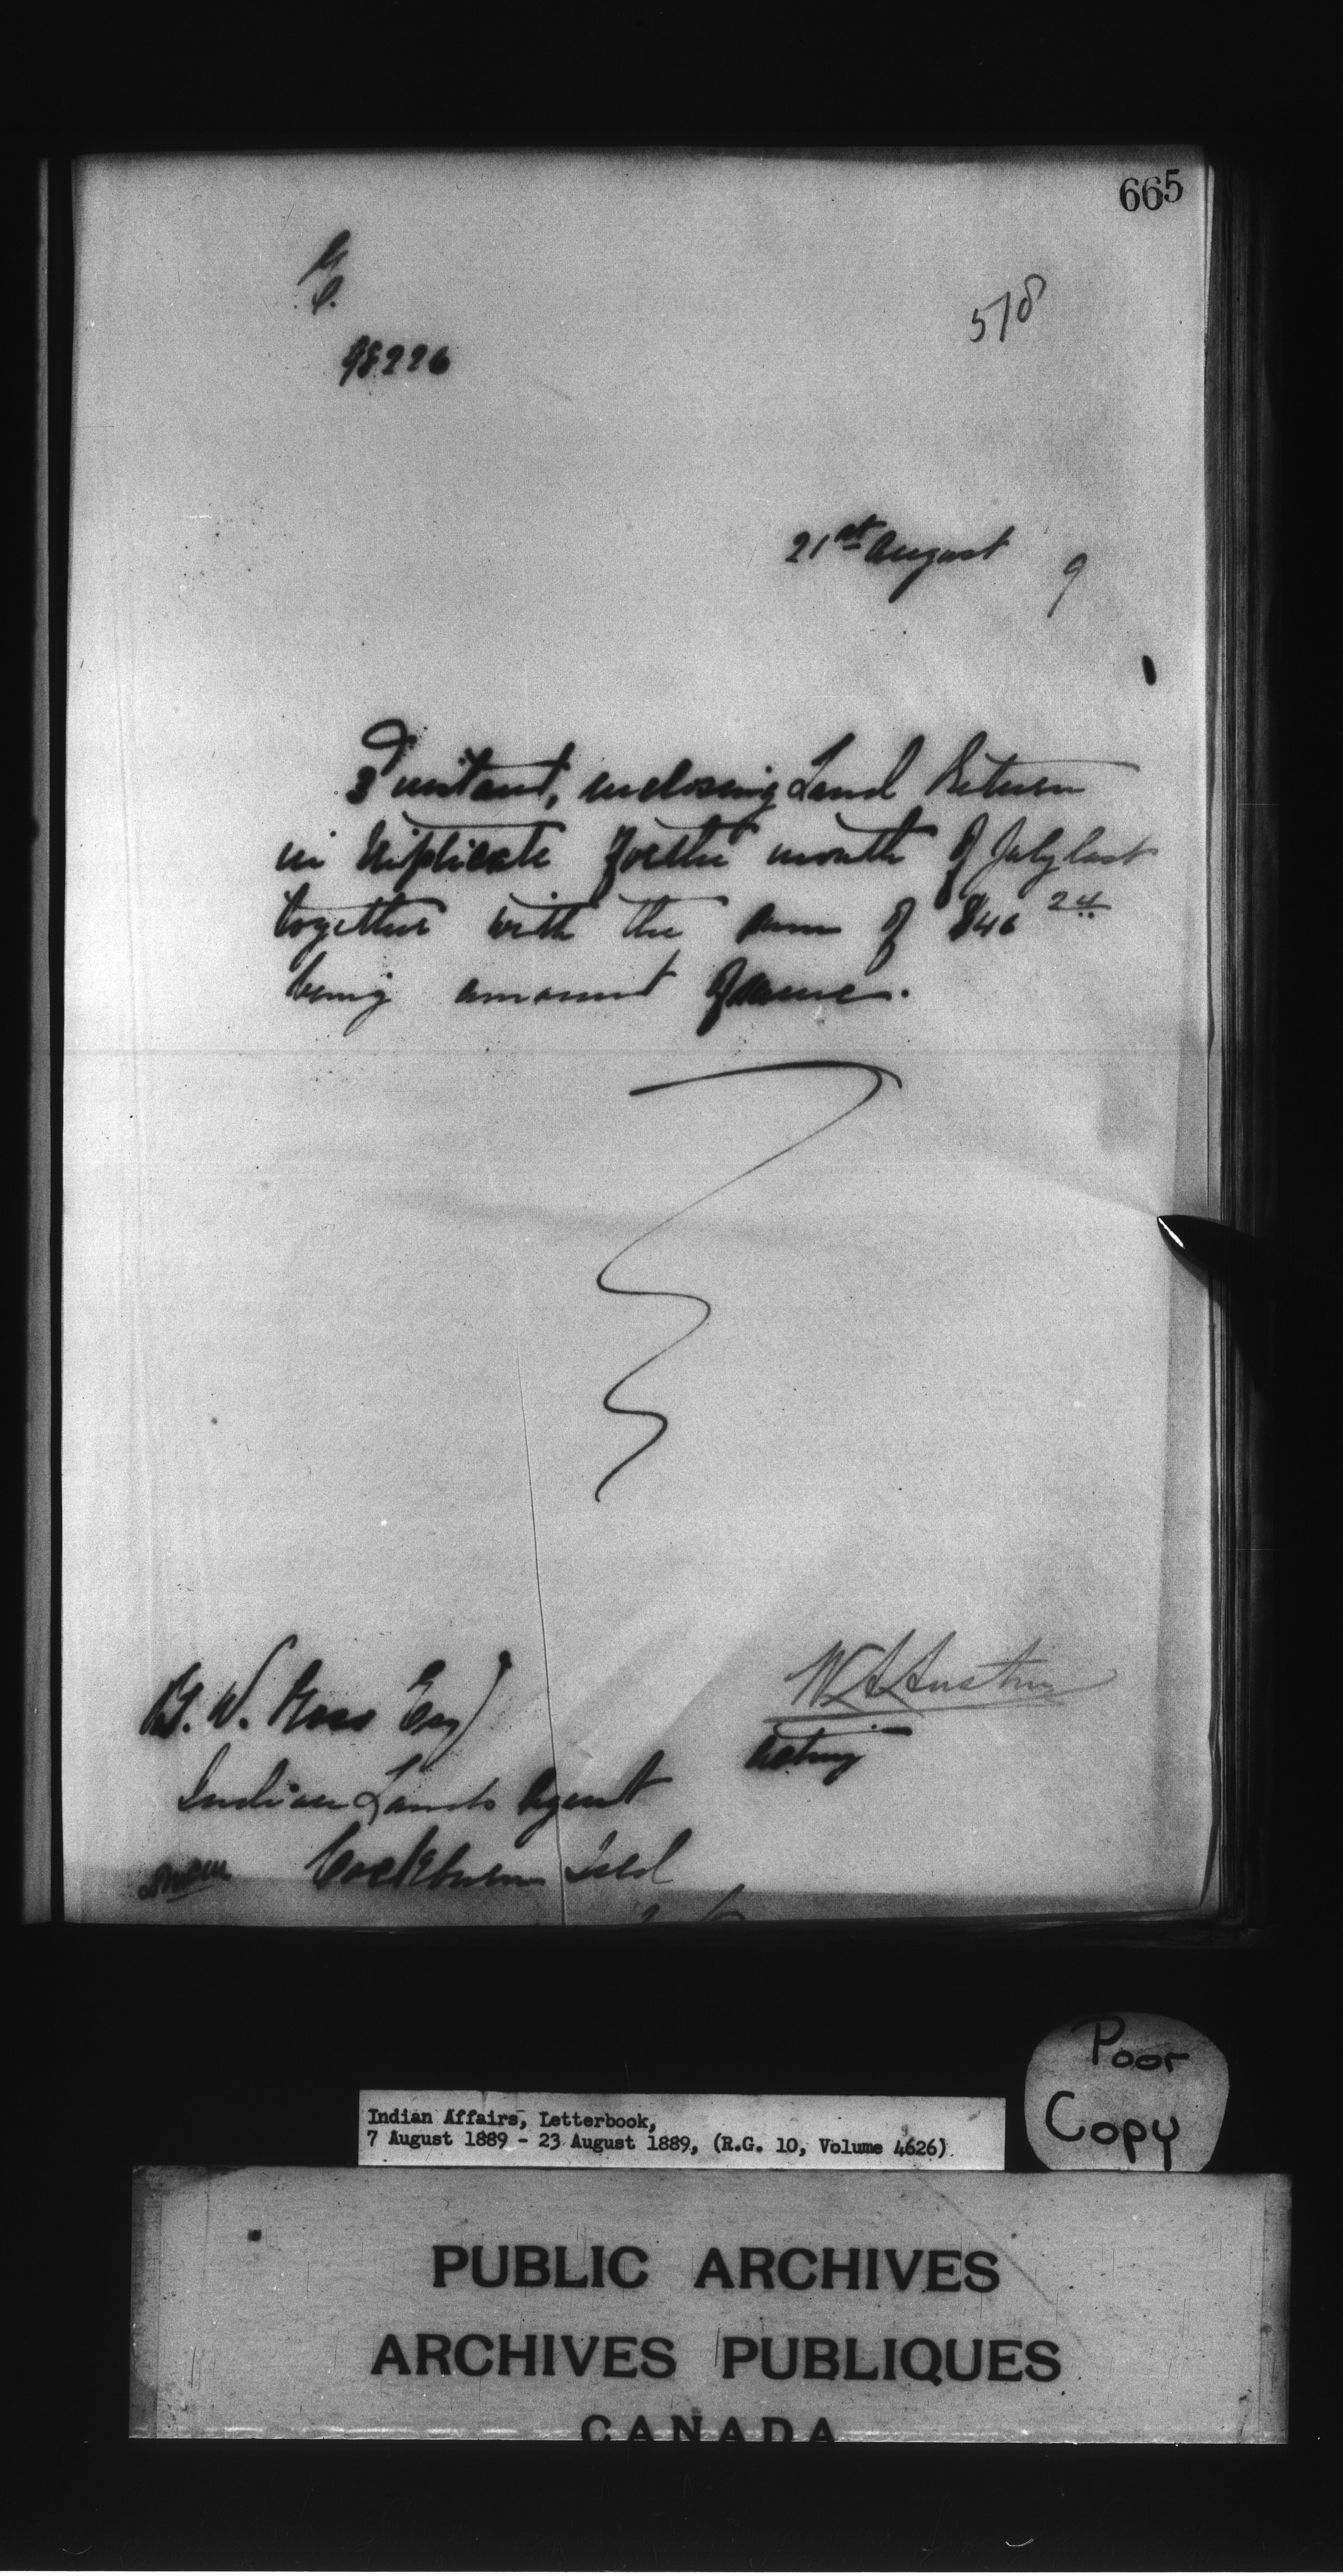 665
518
98226
21st August 9
3 instant, enclosing Land Return
in triplicate for the month of July last
together with the sum of $46 24
being amount of same.
W A Austin
Acting
B. W. Ross Esq
Indian Lands Agent
Cockburn Isld
Poor
Copy
Indian Affairs, Letterbook,
7 August 1889 - 23 August 1889, (R.G. 10, Volume 4626)
PUBLIC ARCHIVES
ARCHIVES PUBLIQUES
CANADA